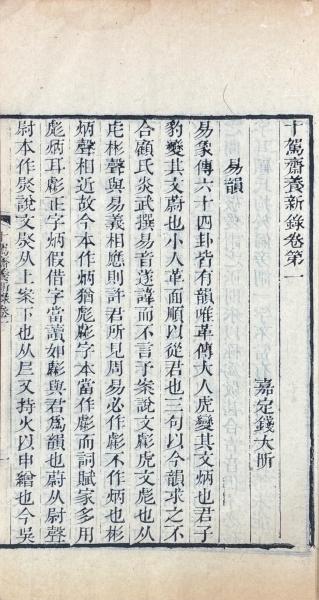 十駕齋養新錄卷第一
嘉定錢大昕
易韻
易象傳六十四卦皆有韻唯革傳大人虎變其文炳也君子
豹變其文蔚也小人革面順以從君也三句以今韻求之不
合顧氏炎武撰易音遂諱而不言予案說文彪虎文彪也从
虎彬聲與易義相應則許君所見周易必作彪不作炳也彬
炳聲相近故今本作炳猶彪彪字本當作彪而詞賦家多用
彪炳耳彪正字炳假借字當讀如彪與君為韻也蔚从尉聲
尉本作㷉說文㷉从上案下也从𡰥又持火以申繒也今吳